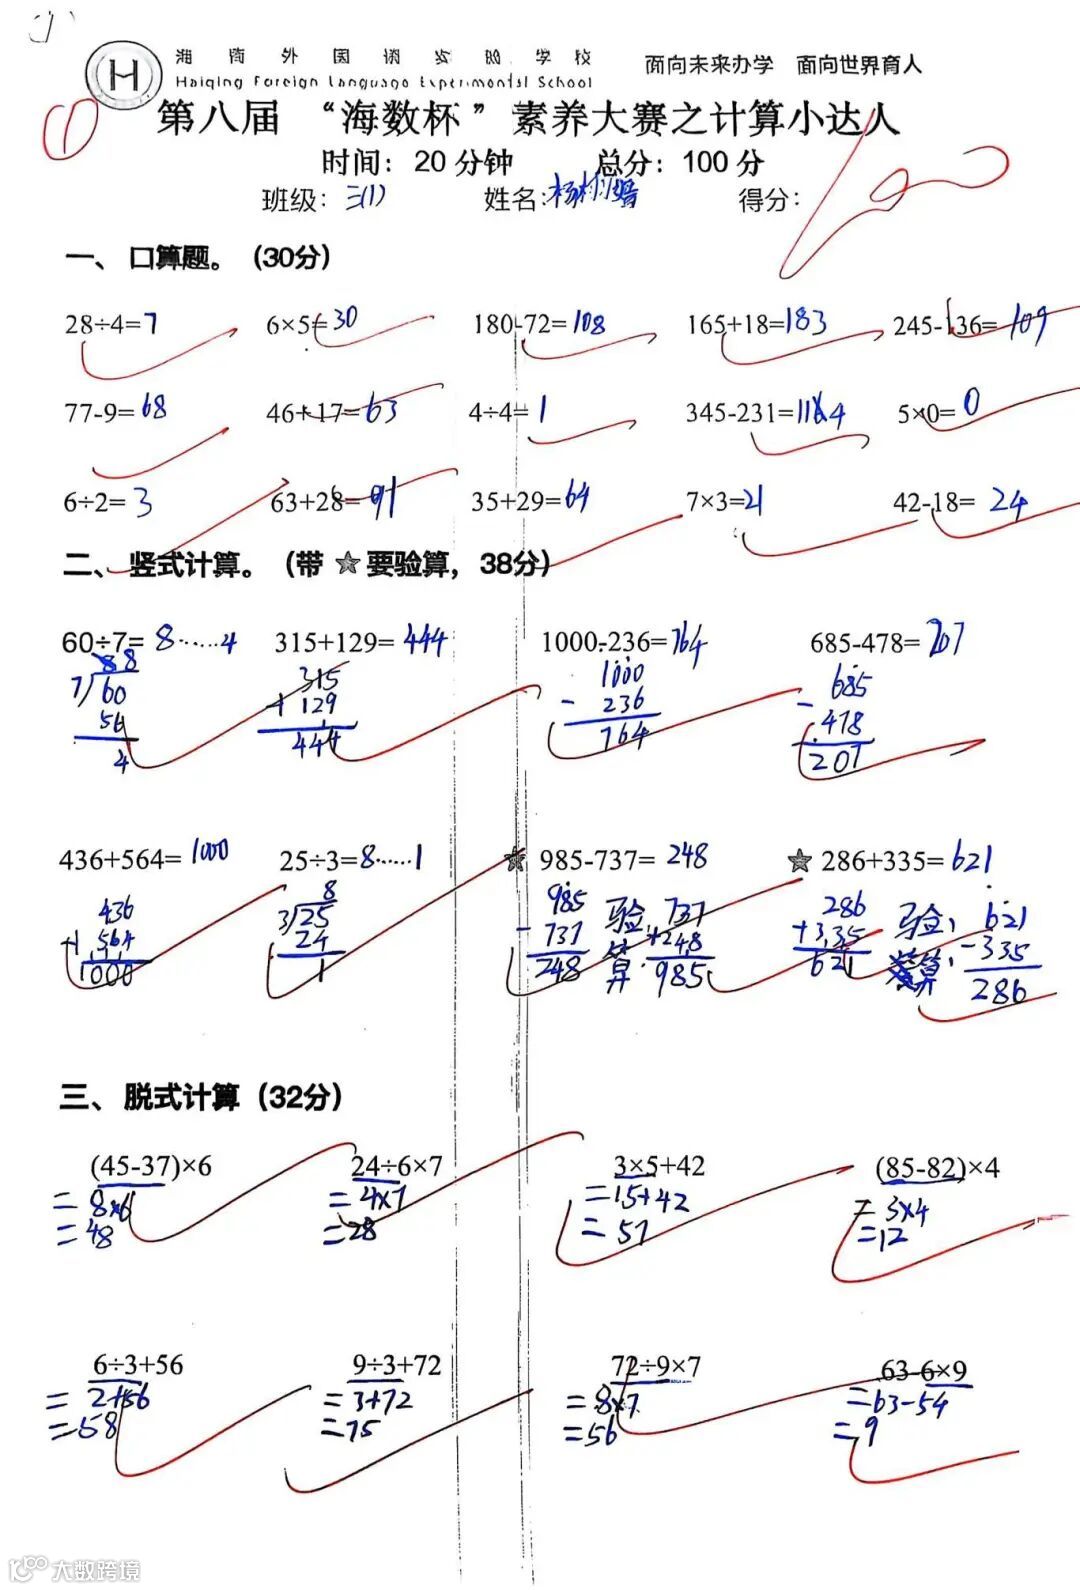 海清外国语实验学校 面向未来办学 面向世界育人
Haiqing Foreign Language Experimental School
①
第八届 “海数杯” 素养大赛之计算小达人
时间：20分钟 总分：100分
班级：三(1) 姓名: 得分：
一、口算题。（30分）
28÷4=7 6×5=30 180-72=108 165+18=183 245-136=109
77-9=68 46+17=63 4÷4=1 345-231=114 5×0=0
6÷2=3 63+28=91 35+29=64 7×3=21 42-18=24
二、竖式计算。（带★要验算，38分）
60÷7=8……4 315+129=444 1000-236=764 685-478=207
88 315 1000 685
7)60 +129 -236 -478
56 444 764 207
4
436+564=1000 25÷3=8……1 ★985-737=248 ★286+335=621
436 8 985 验 737 286 验： 621
+564 3)25 -737 算： +248 +335 算： -335
1000 24 248 985 621 286
1
三、脱式计算（32分）
(45-37)×6 24÷6×7 3×5+42 (85-82)×4
=8×6 =4×7 =15+42 =3×4
=48 =28 =57 =12
6÷3+56 9÷3+72 72÷9×7 63-6×9
=2+56 =3+72 =8×7 =63-54
=58 =75 =56 =9
大数跨境